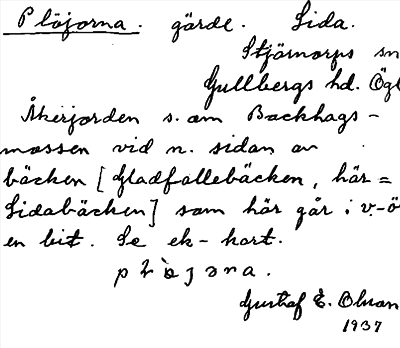 Plöjorna. gärde. Lida.
Stjärnorps sn
Gullbergs hd. Ögl
Åkerjorden s. om Backhags-
mossen vid n. sidan av
bäcken [Gladfallebäcken, här =
Lidabäcken] som här går i v.-ö
en bit. Se ek-kart.
Gustaf E. Olsson
1937